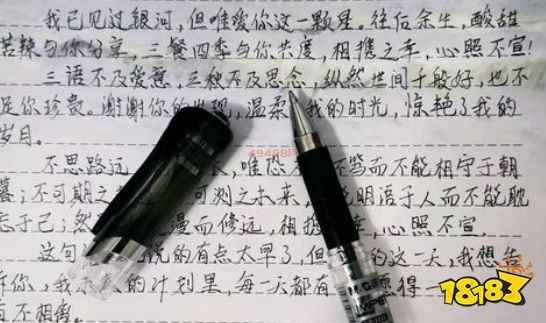 我已见过银河,但唯爱你这一颗星。往后余生,酸甜
苦辣与你分享,三餐四季与你共度,相携之幸,心照不宣!
三语不及爱意,三秋不及思念,纵然世间千般好,也不
足你珍贵。谢谢你的出现,温柔我的时光,惊艳了我的
岁月。
不思路远 唯恐 不笃而不能相守于朝
暮;不可期之 可测之未来, 能明语于人而不能耽
忘于己;然 漫而修远,相携 幸,心照不宣
这句 说的有点太早了,但 的这一天,我想告
诉你,我未来的计划里,每一天都有 愿得一
首不相离。
49488网
18183